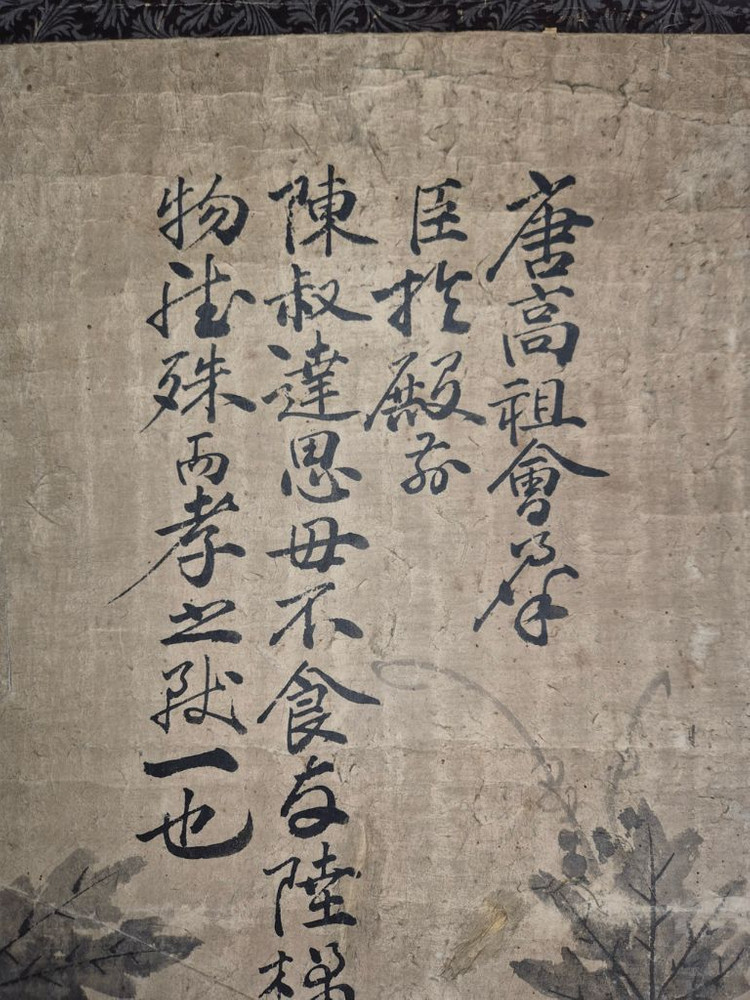 唐高祖會羣
臣於殿前
陳叔達思母不食陸橘
物雖殊而孝之致一也